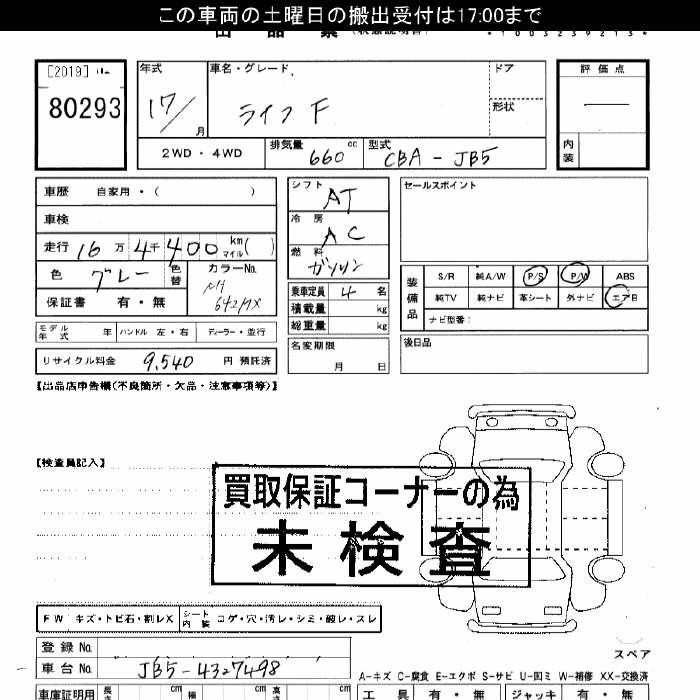 この車両の土曜日の搬出受付は17:00まで
[2019]
80293
年式
17/
月
車名・グレード
ライフ F
ドア
形状
評価点
内装
2WD ・ 4WD
排気量
660 cc
型式
CBA - JB5
車歴 自家用 ・ ( )
車検
走行 16 万 4 千 400 km マイル ( )
色 グレー 色替
カラーNo.
NH
642MX
保証書 有 ・ 無
シフト
AT
冷房
AC
燃料
ガソリン
乗車定員 4 名
積載量 kg
総重量 kg
名変期限
月 日
モデル年式 年 ハンドル 左 ・ 右 ディーラー ・ 並行
リサイクル料金 9,540 円 預託済
セールスポイント
装備品
S/R 純A/W P/S P/W ABS
純TV 純ナビ 革シート 外ナビ エアB
ナビ型番:
後日品
【出品店申告欄(不良箇所・欠品・注意事項等)】
【検査員記入】
買取保証コーナーの為
未検査
FW キズ・トビ石・割レX シート内装 コゲ・穴・汚レ・シミ・破レ・スレ
スペア
登録 No.
車台 No. JB5-4327498
A-キズ C-腐食 E-エクボ S-サビ U-凹ミ W-補修 XX-交換済
車庫証明用 長さ cm 幅 cm 高さ cm
工具 有・無 ジャッキ 有・無